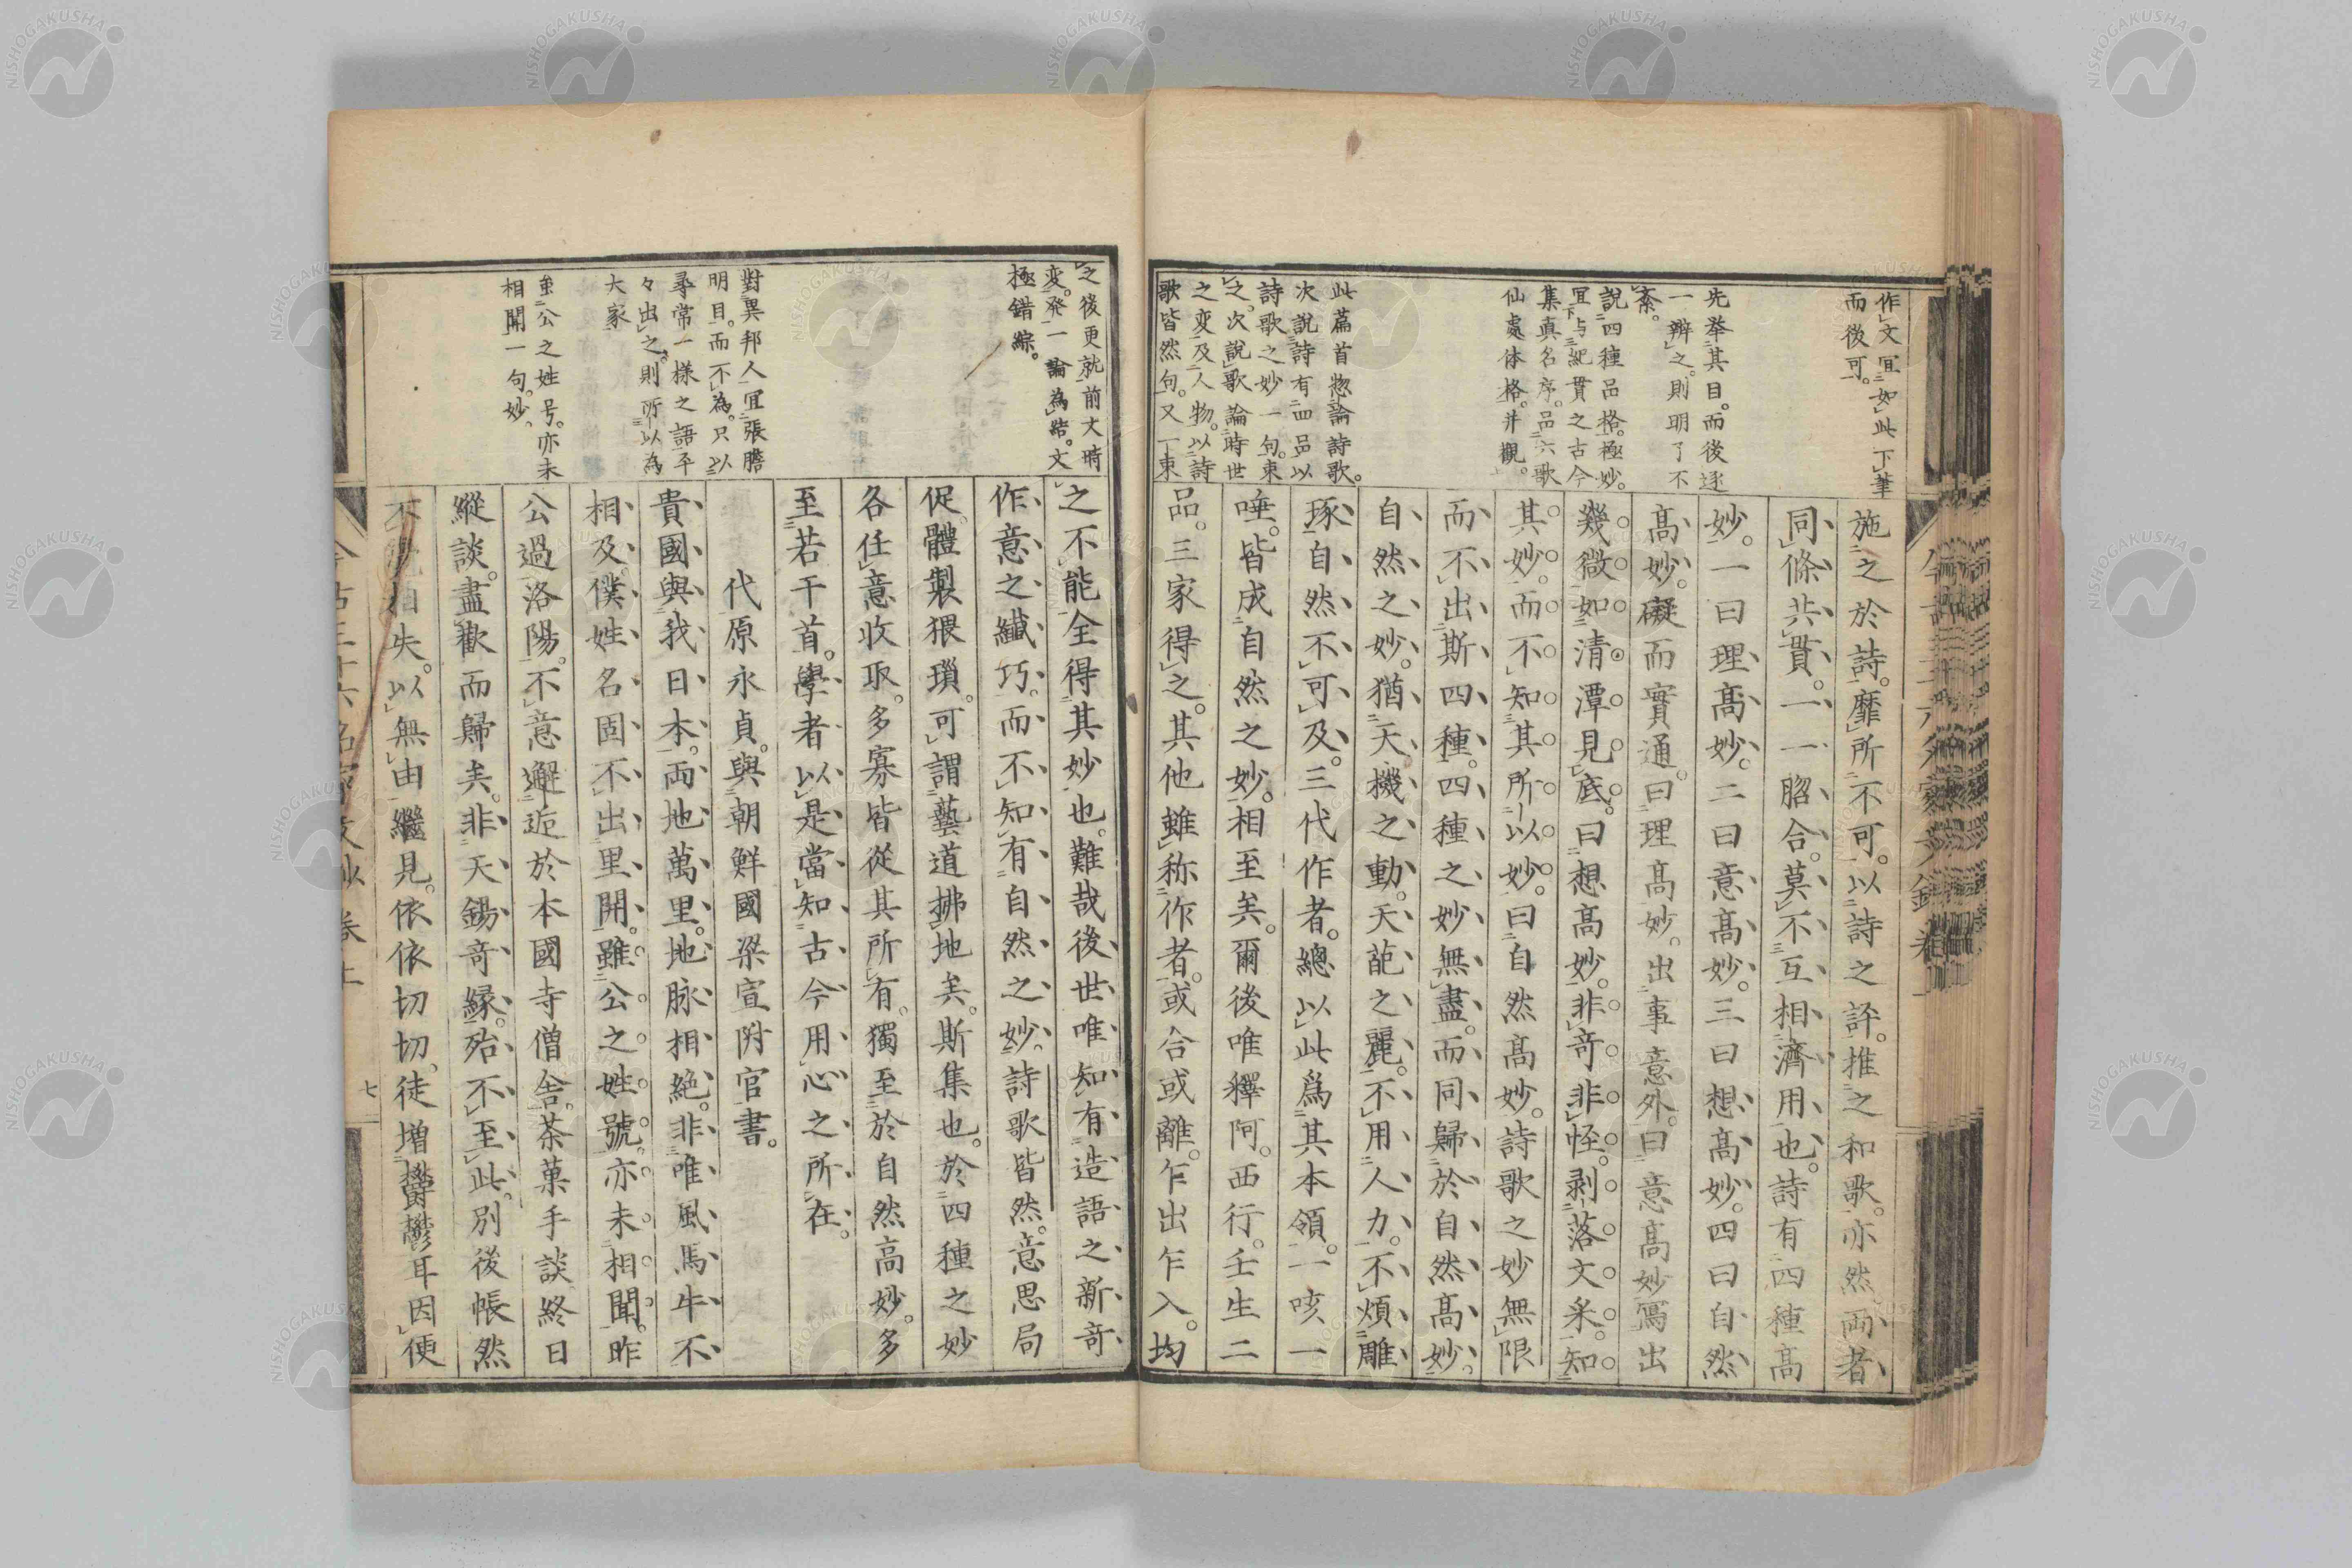 作文宜如此下筆
而後可。
先挙其目。而後逐
一辨之。則明了不
紊。
説四種品格。極妙。
宜与紀貫之古今
集真名序。品六歌
仙處体格。并觀。
此篇首惣論詩歌。
次説詩有四品以
詩歌之妙一句。束
之。次説歌論時世
之変及人物。以詩
歌皆然句。又一束
施之於詩。靡所不可。以詩之評。推之和歌。亦然両者
同條共貫。一一脗合。莫不互相濟用也。詩有四種高
妙。一曰理高妙。二曰意高妙。三曰想高妙。四曰自然
高妙。礙而實通。曰理高妙。出事意外。曰意高妙寫出
幾微如清潭見底。曰想高妙。非奇非恠。剥落文采。知
其妙。而不知其所以妙。曰自然高妙。詩歌之妙無限
而不出斯四種。四種之妙無盡。而同歸於自然高妙。
自然之妙。猶天機之動。天葩之麗。不用人力。不煩雕
琢。自然不可及。三代作者。總以此爲其本領。一咳一
唾。皆成自然之妙。相至矣。爾後唯釋阿。西行。壬生二
品。三家得之。其他雖称作者。或合或離。乍出乍入。均
之後更就前文時
変。発一論為結。文
極錯綜。
對異邦人宜張膽
明目。而不為。只以
尋常一様之語平
々出之。則所以為
大家
虽公之姓号。亦未
相聞一句。妙、
之不能全得其妙也。難哉後世唯知有造語之新奇
作意之纖巧。而不知有自然之妙。詩歌皆然。意思局
促。體製猥瑣。可謂藝道拂地矣。斯集也。於四種之妙
各任意收取。多寡皆從其所有。獨至於自然高妙。多
至若干首。學者以是當知古今用心之所在。
代原永貞。與朝鮮國梁宣附官書。
貴國與我日本。両地萬里。地脉相絶。非唯風馬牛不
相及。僕姓名固不出里開。雖公之姓號。亦未相聞。昨
公過洛陽。不意邂逅於本國寺僧舎。茶菓手談終日
縱談。盡歡而歸矣。非天錫奇縁。殆不至此。別後帳然
相失。以無由繼見。依依切切。徒増欝鬱耳因便
七